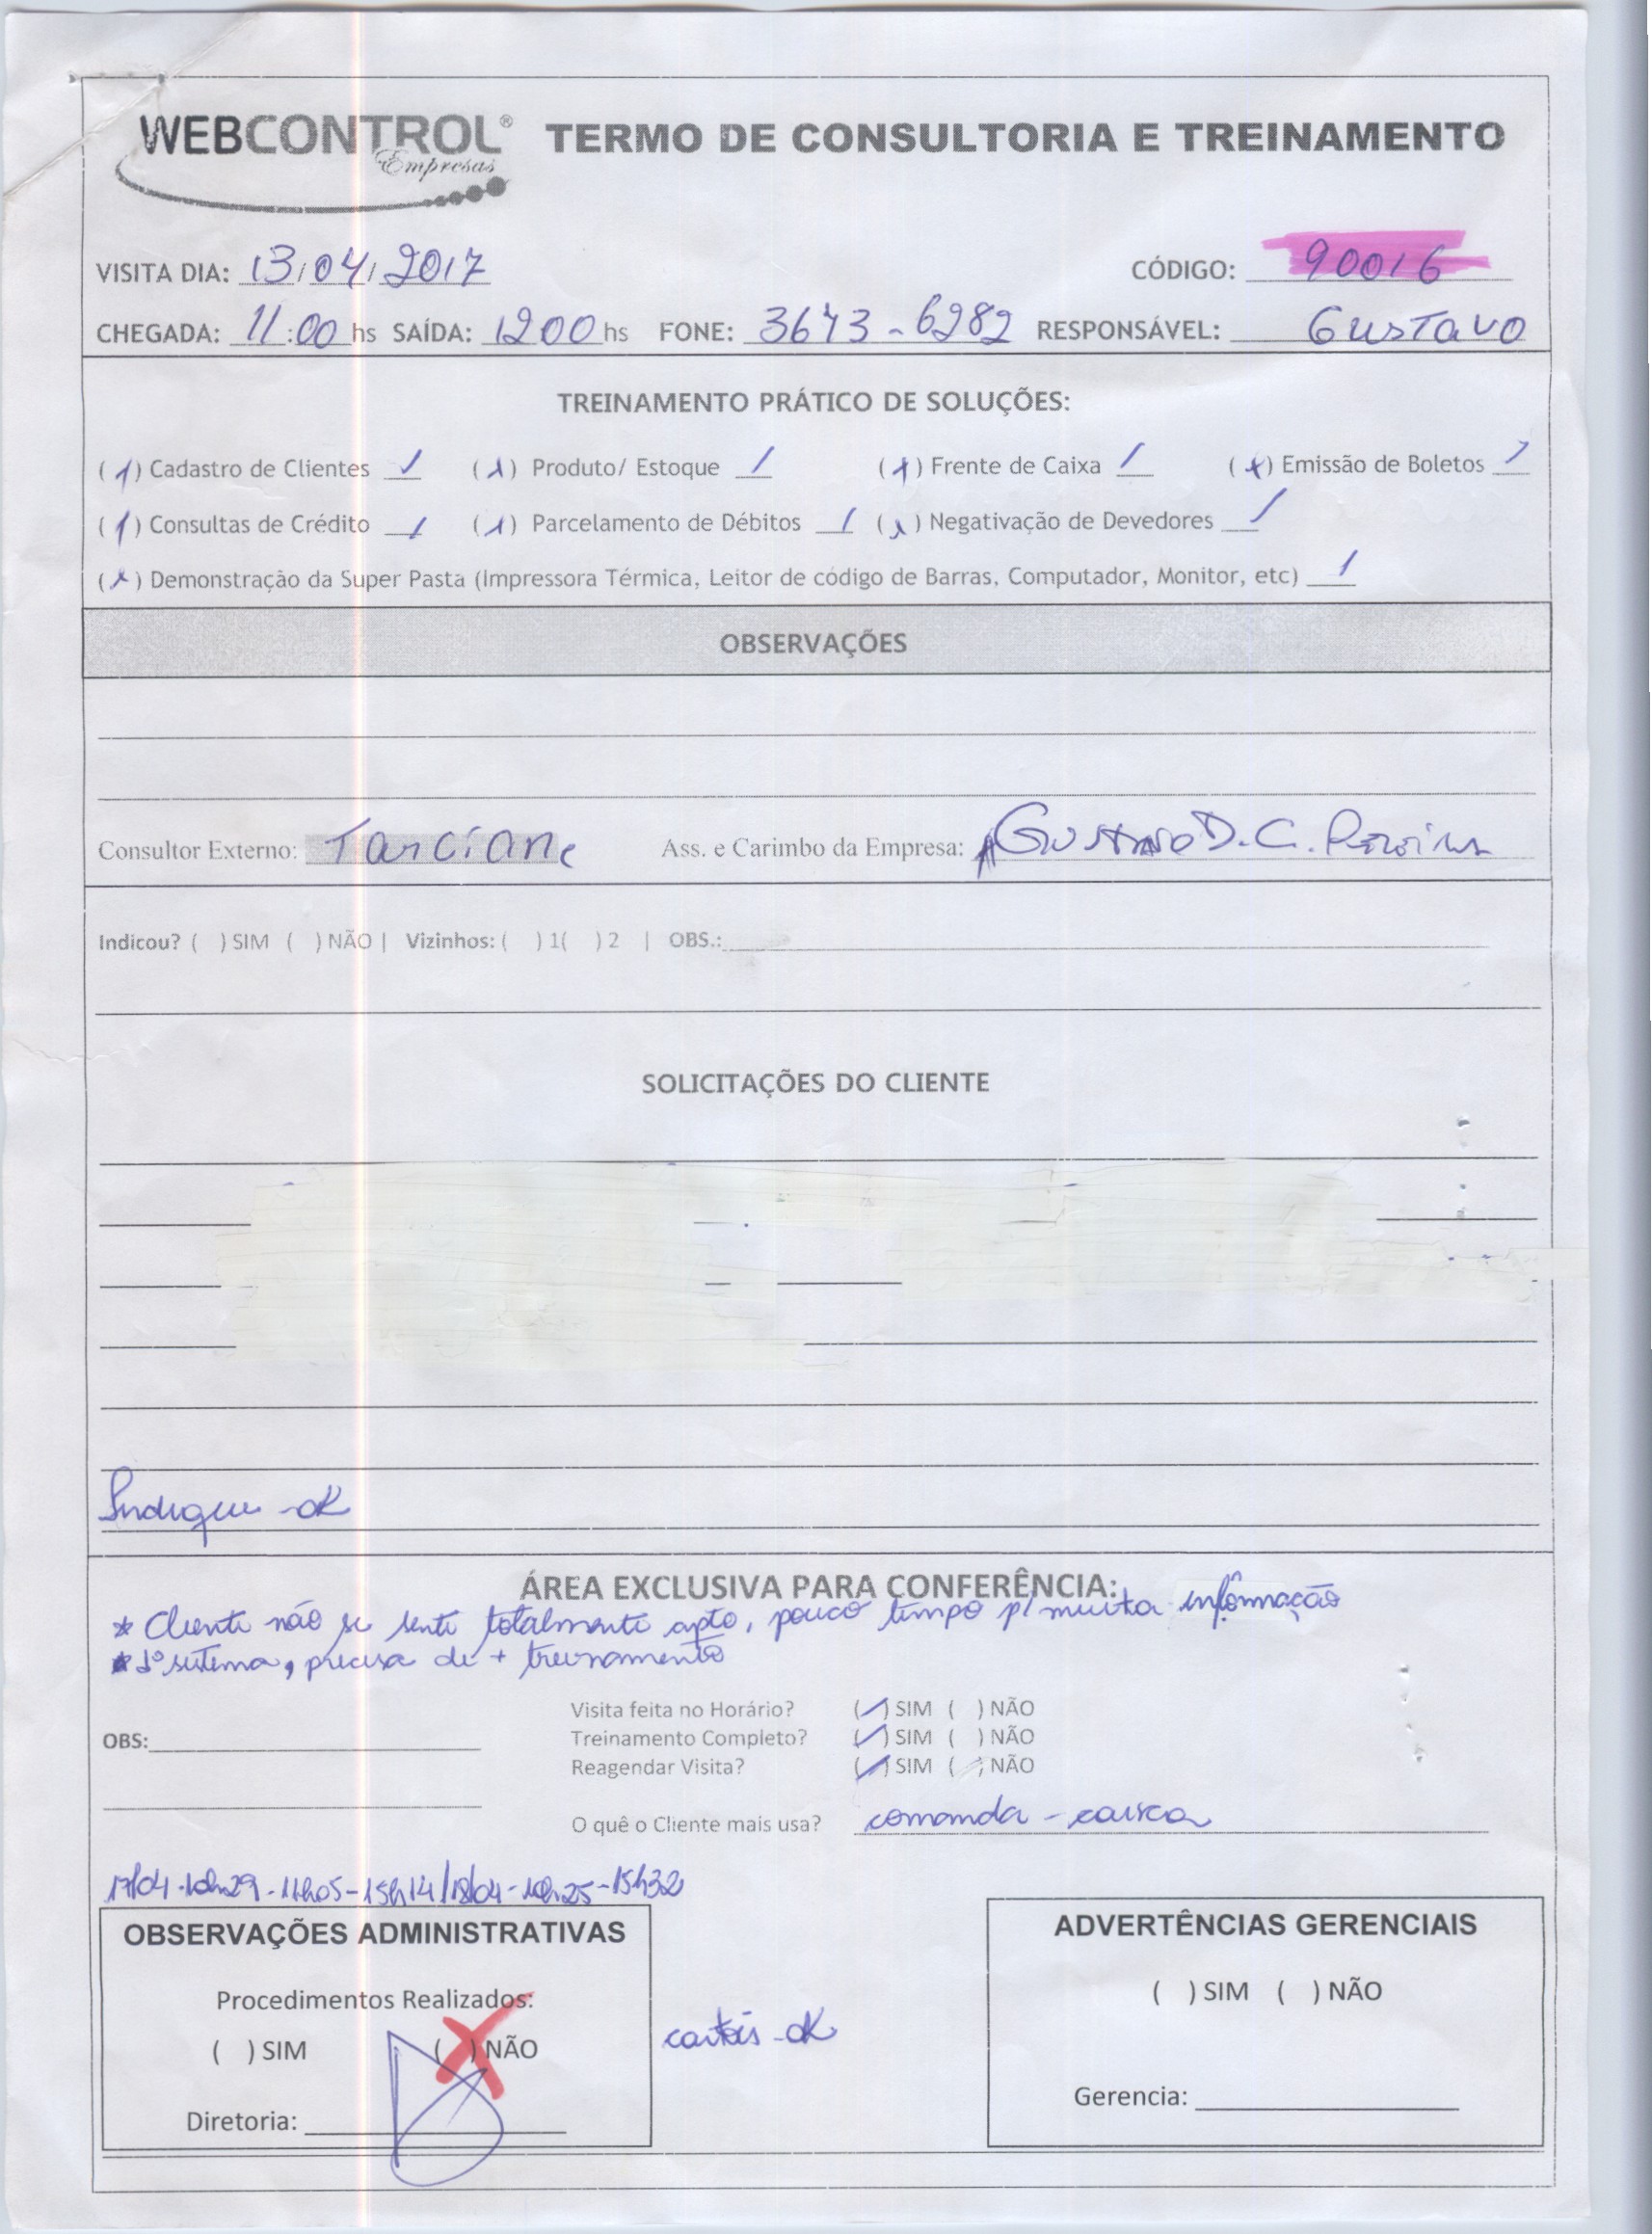 WEBCONTROL® Empresas TERMO DE CONSULTORIA E TREINAMENTO
VISITA DIA: 13/04/2017 CÓDIGO: 90016
CHEGADA: 11:00 hs SAÍDA: 1200 hs FONE: 3673-6282 RESPONSÁVEL: Gustavo
TREINAMENTO PRÁTICO DE SOLUÇÕES:
( ) Cadastro de Clientes ( ) Produto/ Estoque ( ) Frente de Caixa (x) Emissão de Boletos
( ) Consultas de Crédito ( ) Parcelamento de Débitos ( ) Negativação de Devedores
( ) Demonstração da Super Pasta (Impressora Térmica, Leitor de código de Barras, Computador, Monitor, etc)
OBSERVAÇÕES
Consultor Externo: Tarciane Ass. e Carimbo da Empresa: Gustavo D. C. Pereira
Indicou? ( ) SIM ( ) NÃO | Vizinhos: ( ) 1( ) 2 | OBS.:
SOLICITAÇÕES DO CLIENTE
Indique - ok
ÁREA EXCLUSIVA PARA CONFERÊNCIA:
* Cliente não se sente totalmente apto, pouco tempo p/ muita informação
* 1º sistema, precisa de + treinamento
Visita feita no Horário? (/) SIM ( ) NÃO
OBS: Treinamento Completo? (/) SIM ( ) NÃO
Reagendar Visita? (/) SIM ( ) NÃO
O quê o Cliente mais usa? comanda - caixa
17/04-10h29-11h05-15h14/18/04-10h25-15h32
OBSERVAÇÕES ADMINISTRATIVAS
Procedimentos Realizados:
( ) SIM (X) NÃO
Diretoria:
cartões - ok
ADVERTÊNCIAS GERENCIAIS
( ) SIM ( ) NÃO
Gerencia: